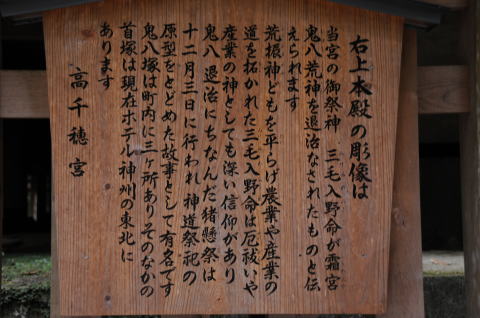 右上本殿の彫像は
当宮の御祭神　三毛入野命が霜宮
鬼八荒神を退治なされたものと伝
えられます
荒振神どもを平らげ農業や産業の
道を拓かれた三毛入野命は厄祓いや
産業の神としても深い信仰があり
鬼八退治にちなんだ猪懸祭は
十二月三日に行われ　神道祭祀の
原型をとどめた故事として有名です
鬼八塚は町内に三ヶ所ありそのなかの
首塚は現在ホテル神州の東北に
あります
高千穂宮